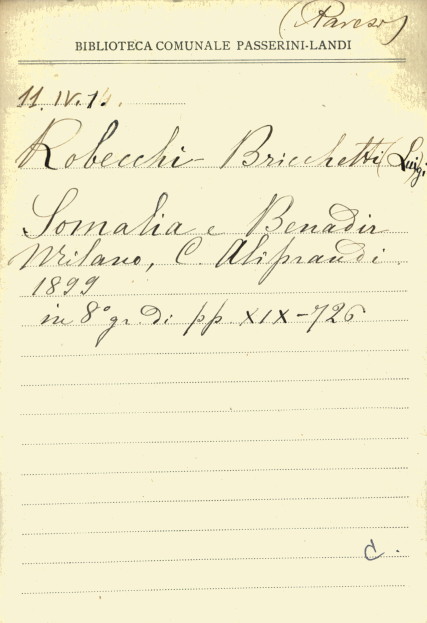 (Pavese)
BIBLIOTECA COMUNALE PASSERINI-LANDI
11. IV. 1
Robecchi-Bricchetti (Luigi
Somalia e Benadir
Milano, C. Aliprandi.
1899
in 8° gr. di pp. XIX-726
C.